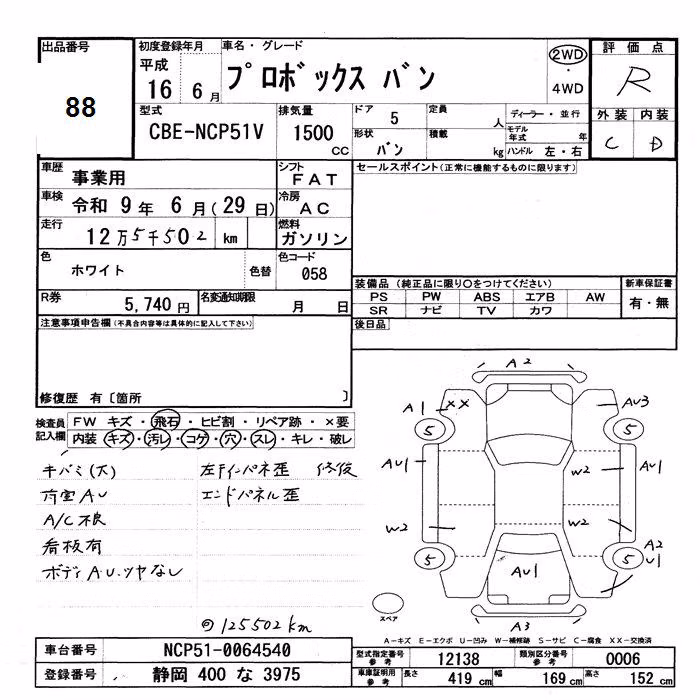 出品番号
88
初度登録年月
平成
16 6 月
車名・グレード
プロボックス バン
2WD
・
4WD
評価点
R
外装 内装
C D
型式
CBE-NCP51V
排気量
1500
CC
ドア 5
形状 バン
定員 人
積載 kg
ディーラー・並行
モデル年式 年
ハンドル 左・右
車歴 事業用
シフト FAT
車検 令和 9 年 6 月(29 日)
冷房 AC
走行 12万5千502 km
燃料 ガソリン
色 ホワイト 色替
色コード 058
R券 5,740 円
名変通知期限 月 日
セールスポイント(正常に機能するものに限ります)
装備品(純正品に限り○をつけてください)
PS PW ABS エアB AW
SR ナビ TV カワ
新車保証書
有・無
後日品
注意事項申告欄(不具合内容等は具体的に記入して下さい)
修復歴 有〔箇所 〕
検査員記入欄
FW キズ・飛石・ヒビ割・リペア跡・×要
内装 キズ・汚レ・コゲ・穴・スレ・キレ・破レ
キバミ(大)
荷室AU
A/C不良
看板有
ボディAU.ツヤなし
左Fインパネ歪 修復
エンドパネル歪
◎125502km
A2
A1
XX
AU3
5
5
AU1
W2
AU1
W2
W2
5
5
A2
U1
AU1
A3
スペア
A-キズ E-エクボ U-凹み W-補修跡 S-サビ C-腐食 XX-交換済
車台番号 NCP51-0064540
登録番号 静岡 400 な 3975
型式指定番号 参考 12138
類別区分番号 参考 0006
車庫証明用 参考
長さ 419 cm 幅 169 cm 高さ 152 cm